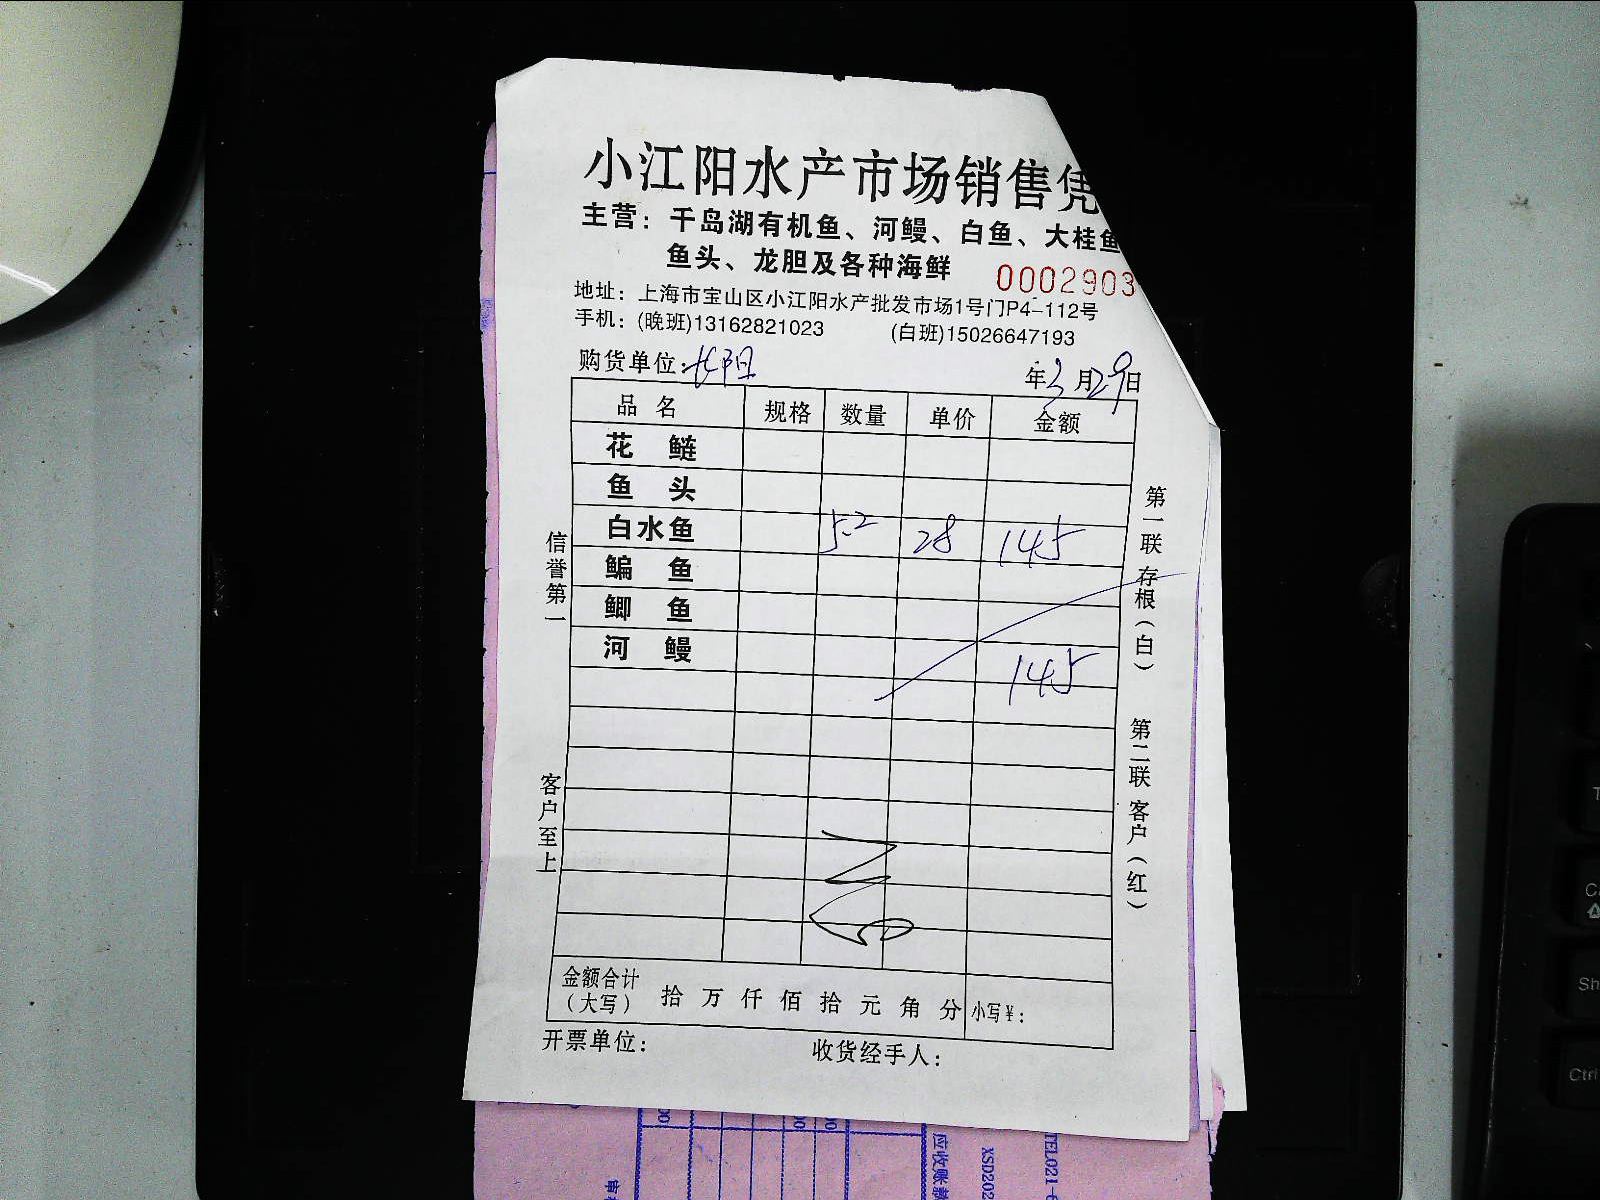 小江阳水产市场销售凭
主营：千岛湖有机鱼、河鳗、白鱼、大桂鱼
鱼头、龙胆及各种海鲜
0002903
地址：上海市宝山区小江阳水产批发市场1号门P4-112号
手机：(晚班)13162821023 (白班)15026647193
购货单位：长阳 年3月29日
品名 规格 数量 单价 金额
花鲢
鱼头
白水鱼 5.2 28 145
鳊鱼
鲫鱼
河鳗 145
信誉第一
客户至上
第一联 存根（白）
第二联 客户（红）
金额合计（大写） 拾 万 仟 佰 拾 元 角 分 小写￥：
开票单位： 收货经手人：
应收账款
XSD202
TEL021-6
Ctrl